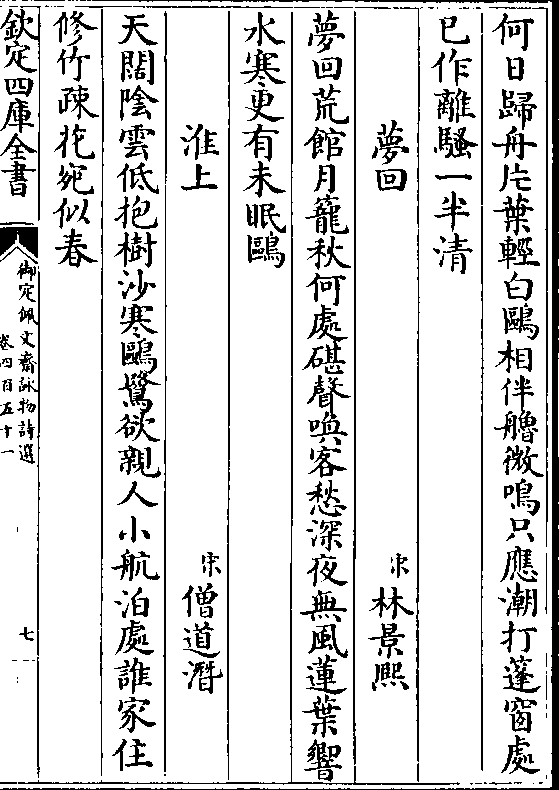 何日歸舟片葉輕白鷗相伴艣微鳴只應潮打蓬窗處
已作離騷一半清
夢回 宋林景熙
夢回荒館月籠秋何處碪聲喚客愁深夜無風蓮葉響
水寒更有未眠鷗
淮上 宋僧道潛
天闊陰雲低抱樹沙寒鷗鷺欲親人小航泊處誰家住
修竹疎花宛似春
欽定四庫全書
御定佩文齋詠物詩選
卷四百五十一
七